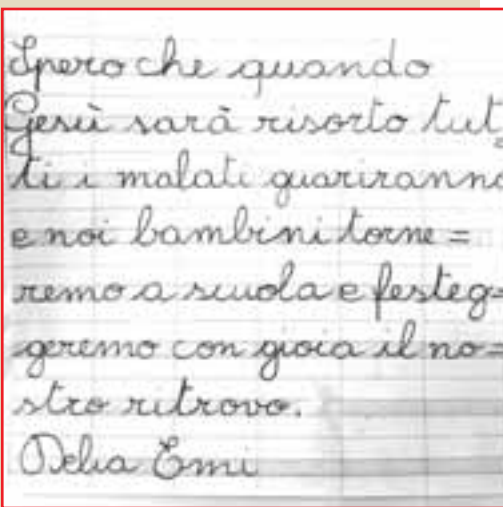 Spero che quando
Gesù sarà risorto tut=
ti i malati guariranno
e noi bambini torne=
remo a scuola e festeg=
geremo con gioia il no=
stro ritrovo.
Delia Emi